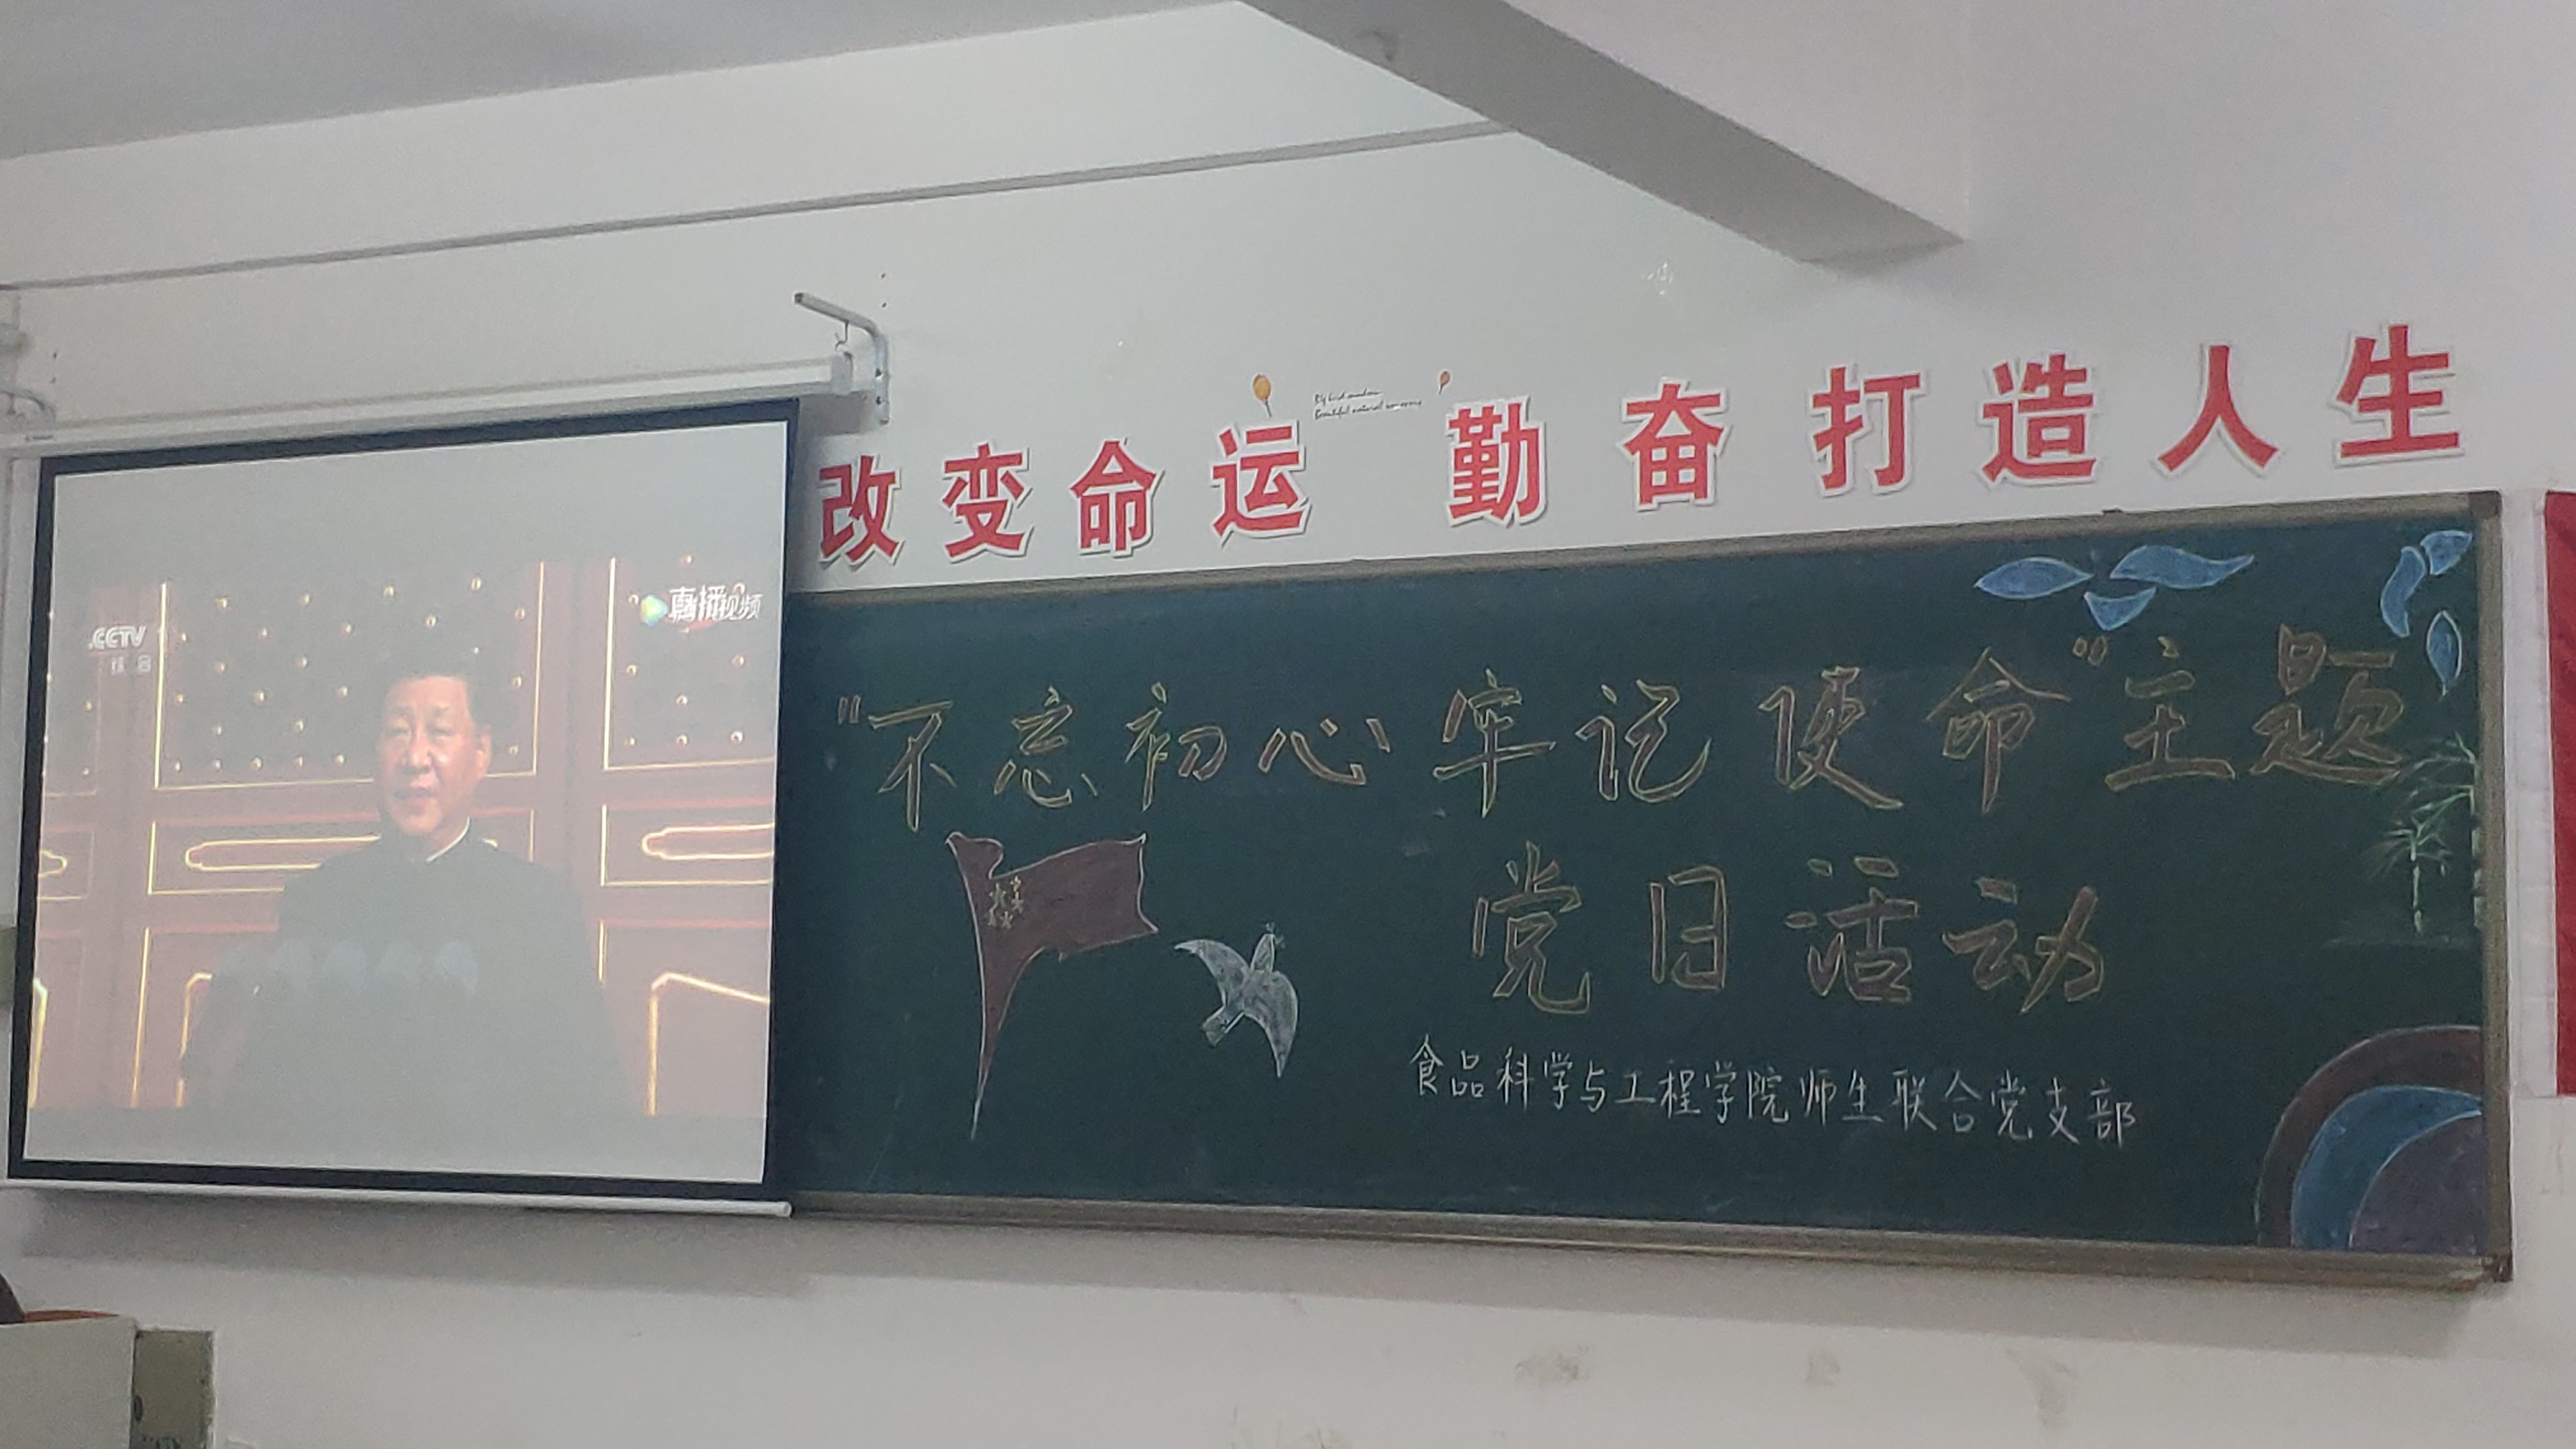 改变命运 勤奋打造人生
CCTV
综合
直播
视频
“不忘初心 牢记使命”主题
党日活动
食品科学与工程学院师生联合党支部